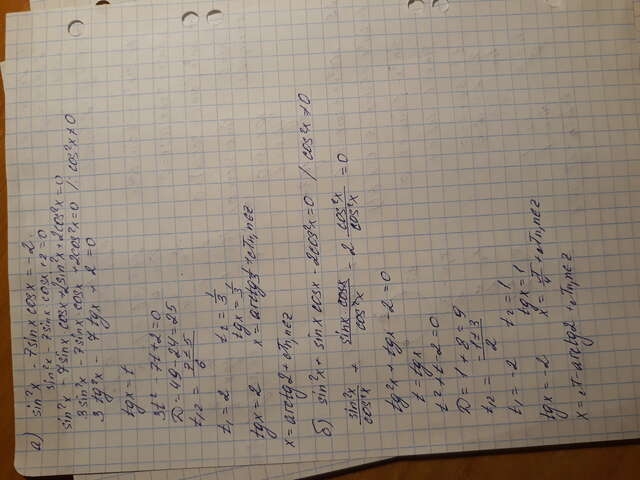 а) sin²x - 7sinx cosx = -2
sin²x - 7sinx·cosx + 2 = 0
sin²x - 7sinx cosx + 2sin²x + 2cos²x = 0
3sin²x - 7sinx cosx + 2cos²x = 0 / cos²x ≠ 0
3 tg²x - 7 tgx + 2 = 0
tgx = t
3t² - 7t + 2 = 0
D = 49 - 24 = 25
t₁,₂ = (7 ± 5)/6
t₁ = 2 t₂ = 1/3
tgx = 1/3
tgx = 2 x = arctg 1/3 + πn, n∈z
x = arctg2 + πn, n∈z
б) sin²x + sinx cosx - 2cos²x = 0 / cos²x ≠ 0
sin²x/cos²x + sinx·cosx/cos²x - 2 cos²x/cos²x = 0
tg²x + tgx - 2 = 0
t = tgx
t² + t - 2 = 0
D = 1 + 8 = 9
t₁,₂ = (-1 ± 3)/2
t₁ = -2 t₂ = 1
tgx = 1
tgx = -2 x = π/4 + πn, n∈z
x = π - arctg2 + πn, n∈z